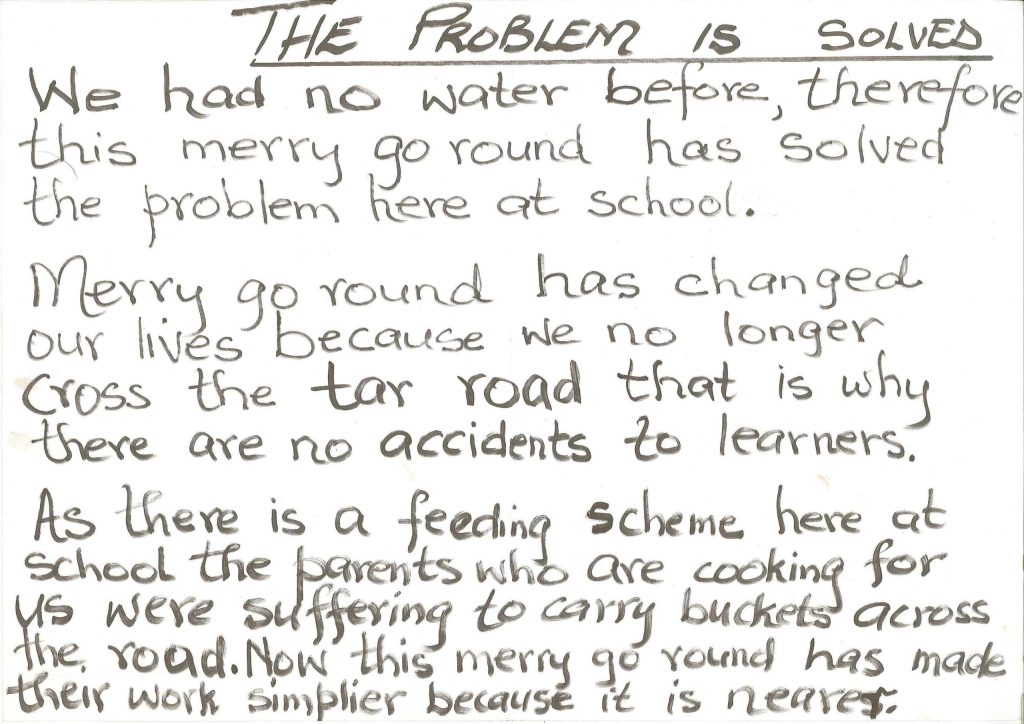 THE PROBLEM IS SOLVED
We had no water before, therefore
this merry go round has solved
the problem here at school.
Merry go round has changed
our lives because we no longer
cross the tar road that is why
there are no accidents to learners.
As there is a feeding scheme here at
school the parents who are cooking for
us were suffering to carry buckets across
the road. Now this merry go round has made
their work simplier because it is nearer.